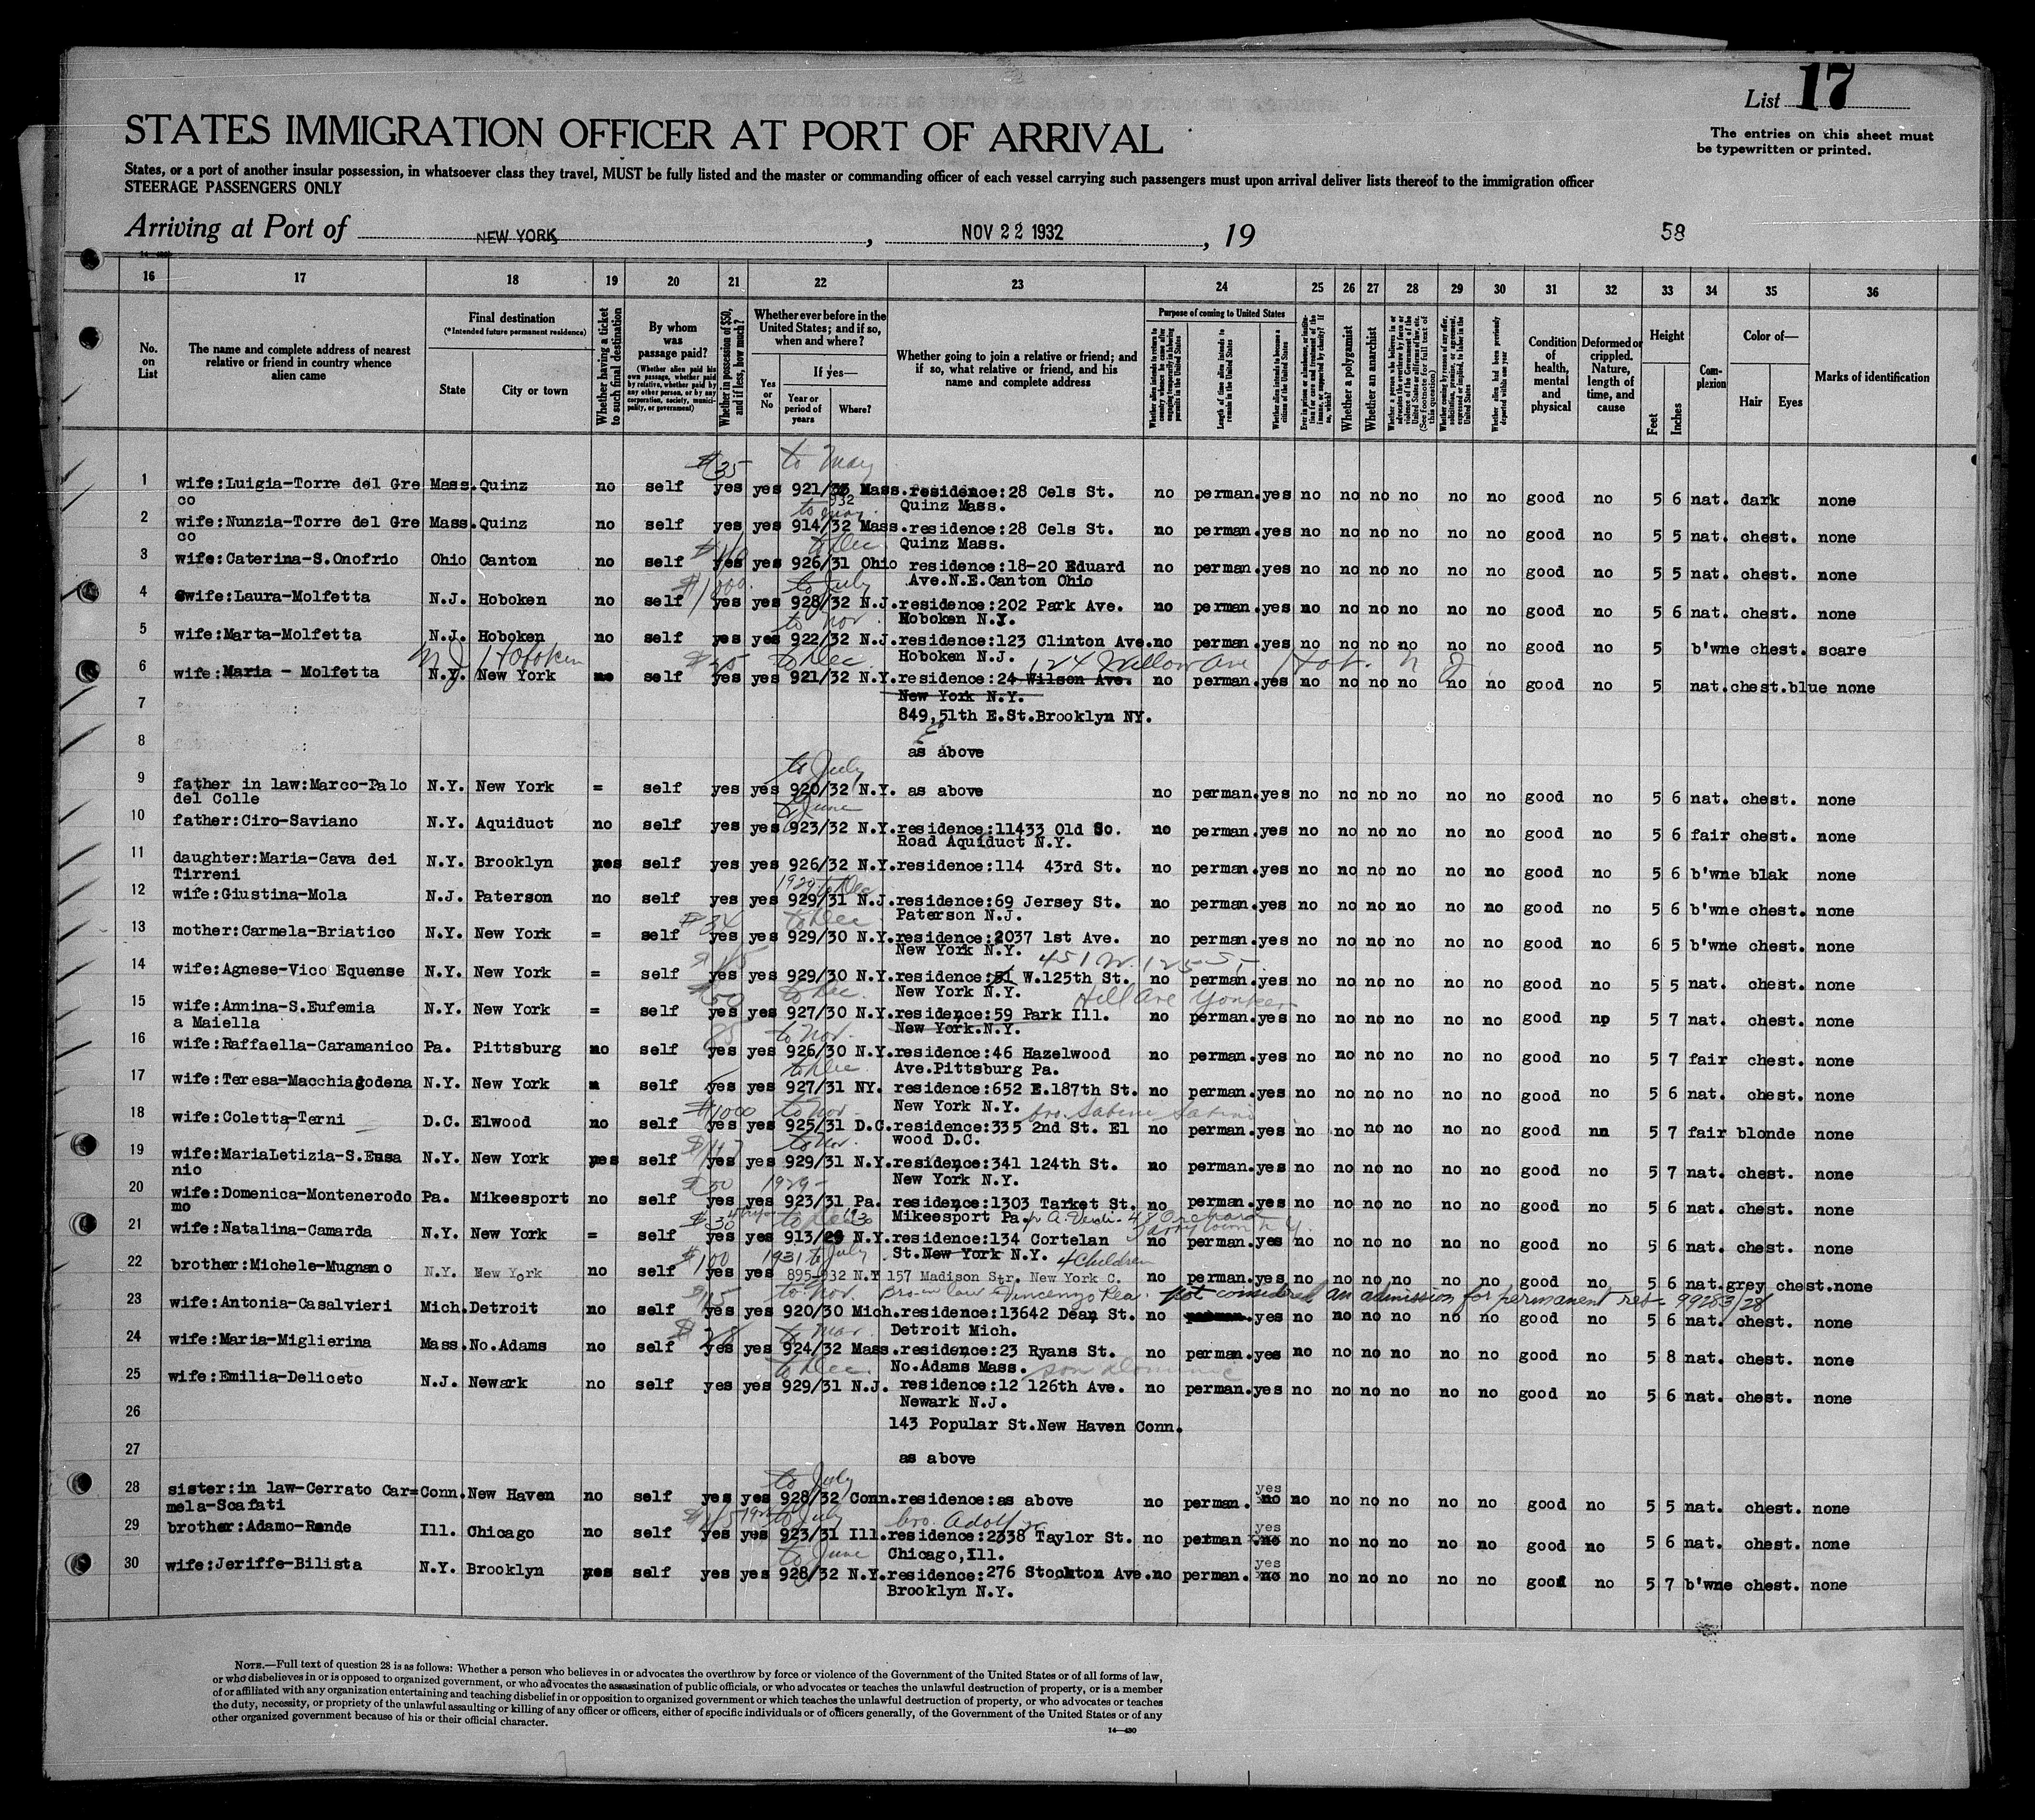 List 17
The entries on this sheet must
be typewritten or printed.
STATES IMMIGRATION OFFICER AT PORT OF ARRIVAL
States, or a port of another insular possession, in whatsoever class they travel, MUST be fully listed and the master or commanding officer of each vessel carrying such passengers must upon arrival deliver lists thereof to the immigration officer
STEERAGE PASSENGERS ONLY
Arriving at Port of NEW YORK, NOV 22 1932, 19 58
16 17 18 19 20 21 22 23 24 25 26 27 28 29 30 31 32 33 34 35 36
No. on List
The name and complete address of nearest relative or friend in country whence alien came
Final destination
(*Intended future permanent residence)
State City or town
Whether having a ticket to such final destination
By whom was passage paid?
(Whether alien paid his own passage, whether paid by relative, whether paid by any other person, or by any corporation, society, municipality, or government)
Whether in possession of $50, and if less, how much?
Whether ever before in the United States; and if so, when and where?
Yes or No
If yes—
Year or period of years
Where?
Whether going to join a relative or friend; and if so, what relative or friend, and his name and complete address
Purpose of coming to United States
Length of time alien intends to remain in the United States
Whether alien intends to become a citizen of the United States
Whether a polygamist
Whether an anarchist
Whether alien had been previously deported within one year
Condition of health, mental and physical
Deformed or crippled. Nature, length of time, and cause
Height
Feet Inches
Complexion
Color of—
Hair Eyes
Marks of identification
$35 to May
1 wife:Luigia-Torre del Gre Mass. Quinz no self yes yes 921/ 932 Mass. residence:28 Cels St. no perman. yes no no no no no no good no 5 6 nat. dark none
co Quinz Mass.
2 wife:Nunzia-Torre del Gre Mass. Quinz no self yes yes 914/32 Mass. residence:28 Cels St. no perman. yes no no no no no no good no 5 5 nat. chest. none
co to Dec. Quinz Mass.
3 wife:Caterina-S.Onofrio Ohio Canton no self yes yes 926/31 Ohio residence:18-20 Eduard no perman. yes no no no no no no good no 5 5 nat. chest. none
$1000. to July Ave.N.E.Canton Ohio
4 wife:Laura-Molfetta N.J. Hoboken no self yes yes 928/32 N.J. residence:202 Park Ave. no perman. yes no no no no no no good no 5 6 nat. chest. none
to Nov Hoboken N.J.
5 wife:Marta-Molfetta N.J. Hoboken no self yes yes 922/32 N.J. residence:123 Clinton Ave. no perman. yes no no no no no no good no 5 b'wne chest. scare
NJ Hoboken to Dec. Hoboken N.J. 124 Willow Ave Hob. NJ
6 wife:Maria - Molfetta N.Y. New York no self yes yes 921/32 N.Y. residence:24 Wilson Ave. no perman. yes no no no no no no good no 5 nat. chest. blue none
New York N.Y.
7 849,51th E.St.Brooklyn NY.
8 as above
to July
9 father in law:Marco-Palo N.Y. New York = self yes yes 920/32 N.Y. as above no perman. yes no no no no no no good no 5 6 nat. chest. none
del Colle to June
10 father:Ciro-Saviano N.Y. Aquiduct no self yes yes 923/32 N.Y. residence:11433 Old So. no perman. yes no no no no no no good no 5 6 fair chest. none
Road Aquiduct N.Y.
11 daughter:Maria-Cava dei N.Y. Brooklyn yes self yes yes 926/32 N.Y. residence:114 43rd St. no perman. yes no no no no no no good no 5 6 b'wne blak none
Tirreni 1929 to Dec
12 wife:Giustina-Mola N.J. Paterson no self yes yes 929/31 N.J. residence:69 Jersey St. no perman. yes no no no no no no good no 5 6 b'wne chest. none
to Dec Paterson N.J.
13 mother:Carmela-Briatico N.Y. New York = self yes yes 929/30 N.Y. residence:2037 1st Ave. no perman. yes no no no no no no good no 6 5 b'wne chest. none
New York N.Y. 451 W. 125 St.
14 wife:Agnese-Vico Equense N.Y. New York = self yes yes 929/30 N.Y. residence:51 W.125th St. no perman. yes no no no no no no good no 5 5 nat. chest. none
to Dec. New York N.Y. Hill Ave Yonkers
15 wife:Annina-S.Eufemia N.Y. New York = self yes yes 927/30 N.Y. residence:59 Park Ill. no perman. yes no no no no no no good no 5 7 nat. chest. none
a Maiella to Nov. New York.N.Y.
16 wife:Raffaella-Caramanico Pa. Pittsburg no self yes yes 926/30 N.Y. residence:46 Hazelwood no perman. yes no no no no no no good no 5 7 fair chest. none
to Dec Ave.Pittsburg Pa.
17 wife:Teresa-Macchiagodena N.Y. New York self yes yes 927/31 NY. residence:652 E.187th St. no perman. yes no no no no no no good no 5 6 nat. chest. none
$1000 to Nov. New York N.Y. bro. Sabino Sabini
18 wife:Coletta-Terni D.C. Elwood no self yes yes 925/31 D.C. residence:335 2nd St. El no perman. yes no no no no no no good no 5 7 fair blonde none
to Nov. wood D.C.
19 wife:MariaLetizia-S.Eusa N.Y. New York yes self yes yes 929/31 N.Y. residence:341 124th St. no perman. yes no no no no no no good no 5 7 nat. chest. none
nio 1929- New York N.Y.
20 wife:Domenica-Montenerodo Pa. Mikeesport no self yes yes 923/31 Pa. residence:1303 Tarket St. no perman. yes no no no no no no good no 5 6 nat. chest. none
mo $30 to Dec 1930 Mikeesport Pa. 48 Orchard Tarrytown N.Y.
21 wife:Natalina-Camarda N.Y. New York = self yes yes 913/29 N.Y. residence:134 Cortelan no perman. yes no no no no no no good no 5 6 nat. chest. none
$100 1931 to July St.New York N.Y. 4 Children
22 brother:Michele-Mugnano N.Y. New York no self yes yes 895-932 N.Y 157 Madison Str. New York C. no perman. yes no no no no no no good no 5 6 nat. grey chest. none
$15 to Nov. Bro in law Vincenzo Rea. Not considered an admission for permanent res- 99283/28
23 wife:Antonia-Casalvieri Mich. Detroit no self yes yes 920/30 Mich. residence:13642 Dean St. no yes no no no no no no good no 5 6 nat. chest. none
to Mar. Detroit Mich.
24 wife:Maria-Miglierina Mass. No.Adams no self yes yes 924/32 Mass. residence:23 Ryans St. no perman. yes no no no no no no good no 5 8 nat. chest. none
to Dec. No.Adams Mass. son Dominic
25 wife:Emilia-Deliceto N.J. Newark no self yes yes 929/31 N.J. residence:12 126th Ave. no perman. yes no no no no no no good no 5 6 nat. chest. none
Newark N.J.
26 143 Popular St.New Haven Conn.
27 as above
to July
28 sister:in law-Cerrato Car= Conn. New Haven no self yes yes 928/32 Conn. residence:as above no perman. yes no no no no no no no good no 5 5 nat. chest. none
mela-Scafati to July bro. Adolf
29 brother:Adamo-Rende Ill. Chicago no self yes yes 923/31 Ill. residence:2338 Taylor St. no perman yes no no no no no no no good no 5 6 nat. chest. none
to June Chicago,Ill.
30 wife:Jeriffe-Bilista N.Y. Brooklyn yes self yes yes 928/32 N.Y. residence:276 Stockton Ave. no perman. yes no no no no no no no good no 5 7 b'wne chest. none
Brooklyn N.Y.
NOTE.—Full text of question 28 is as follows: Whether a person who believes in or advocates the overthrow by force or violence of the Government of the United States or of all forms of law,
or who disbelieves in or is opposed to organized government, or who advocates the assassination of public officials, or who advocates or teaches the unlawful destruction of property, or is a member
of or affiliated with any organization entertaining and teaching disbelief in or opposition to organized government or which teaches the unlawful destruction of property, or who advocates or teaches
the duty, necessity, or propriety of the unlawful assaulting or killing of any officer or officers, either of specific individuals or of officers generally, of the Government of the United States or of any
other organized government because of his or their official character.
14—430